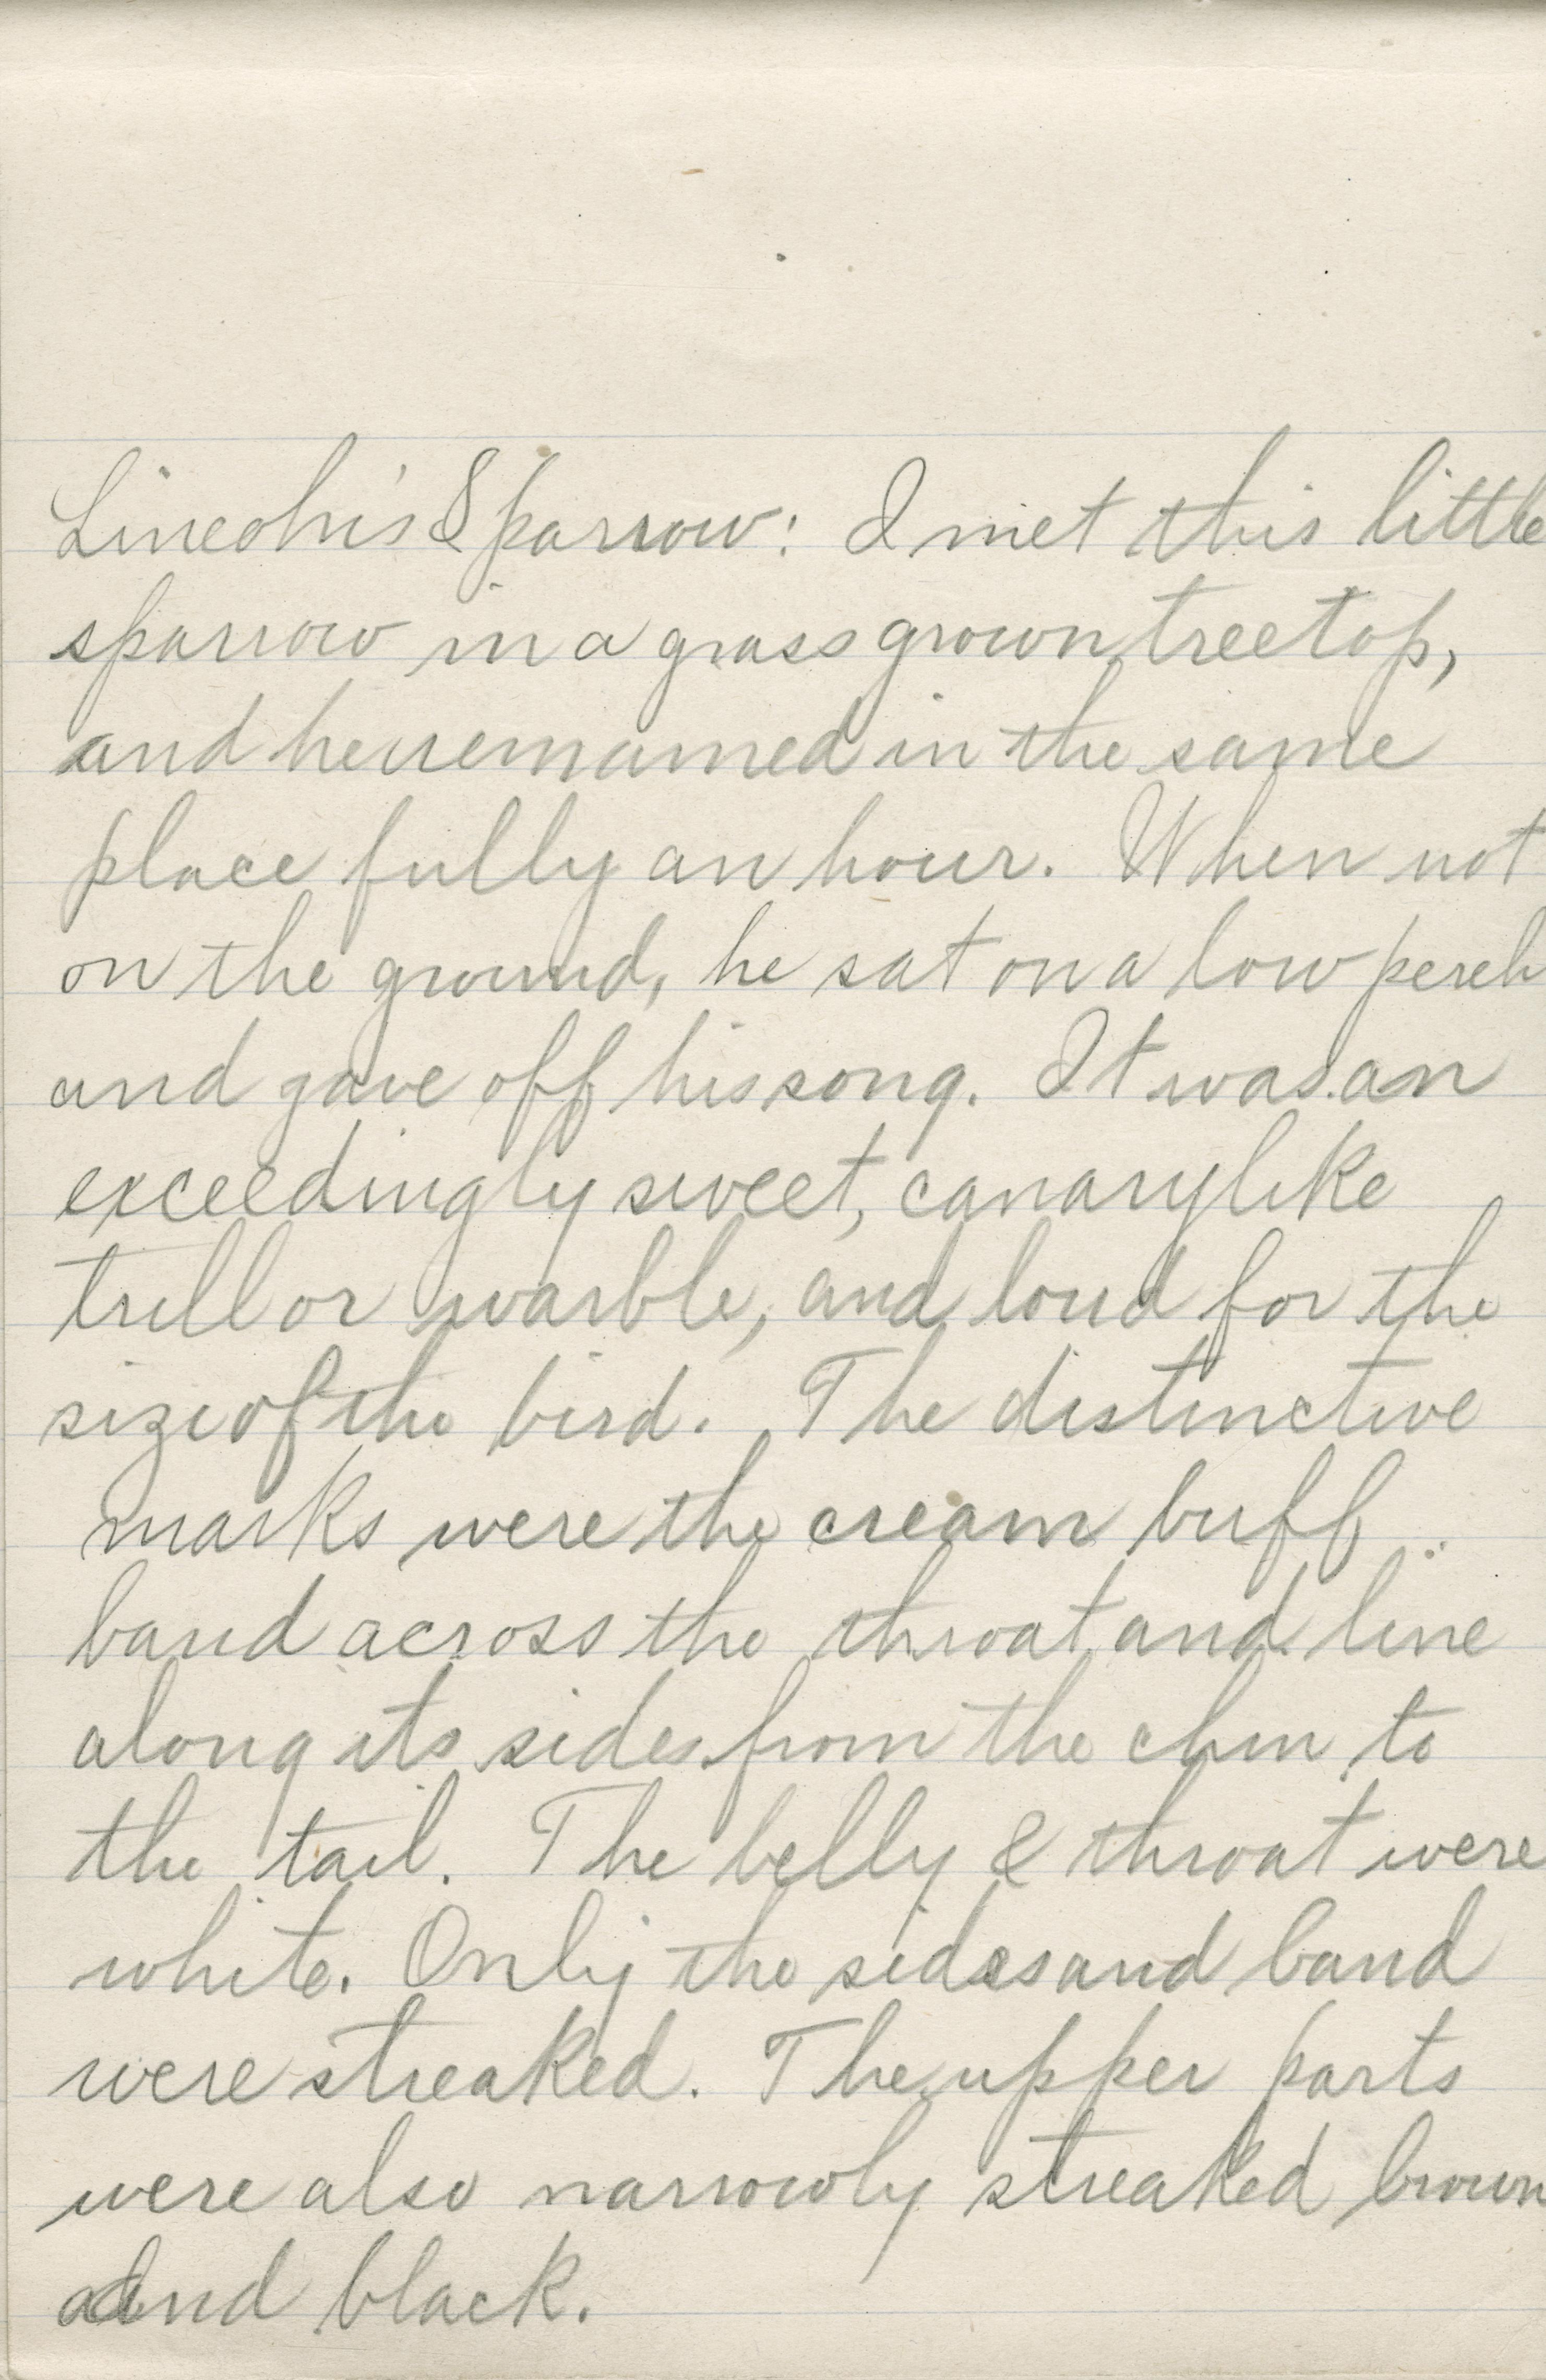 Lincoln's Sparrow: I met this little
sparrow in a grass grown treetop,
and he remained in the same
place fully an hour. When not
on the ground, he sat on a low perch
and gave off his song. It was an
exceedingly sweet, canarylike
trill or warble, and loud for the
size of the bird. The distinctive
marks were the cream buff
band across the throat and line
along its sides from the chin to
the tail. The belly & throat were
white. Only the sides and band
were streaked. The upper parts
were also narrowly streaked brown
and black.